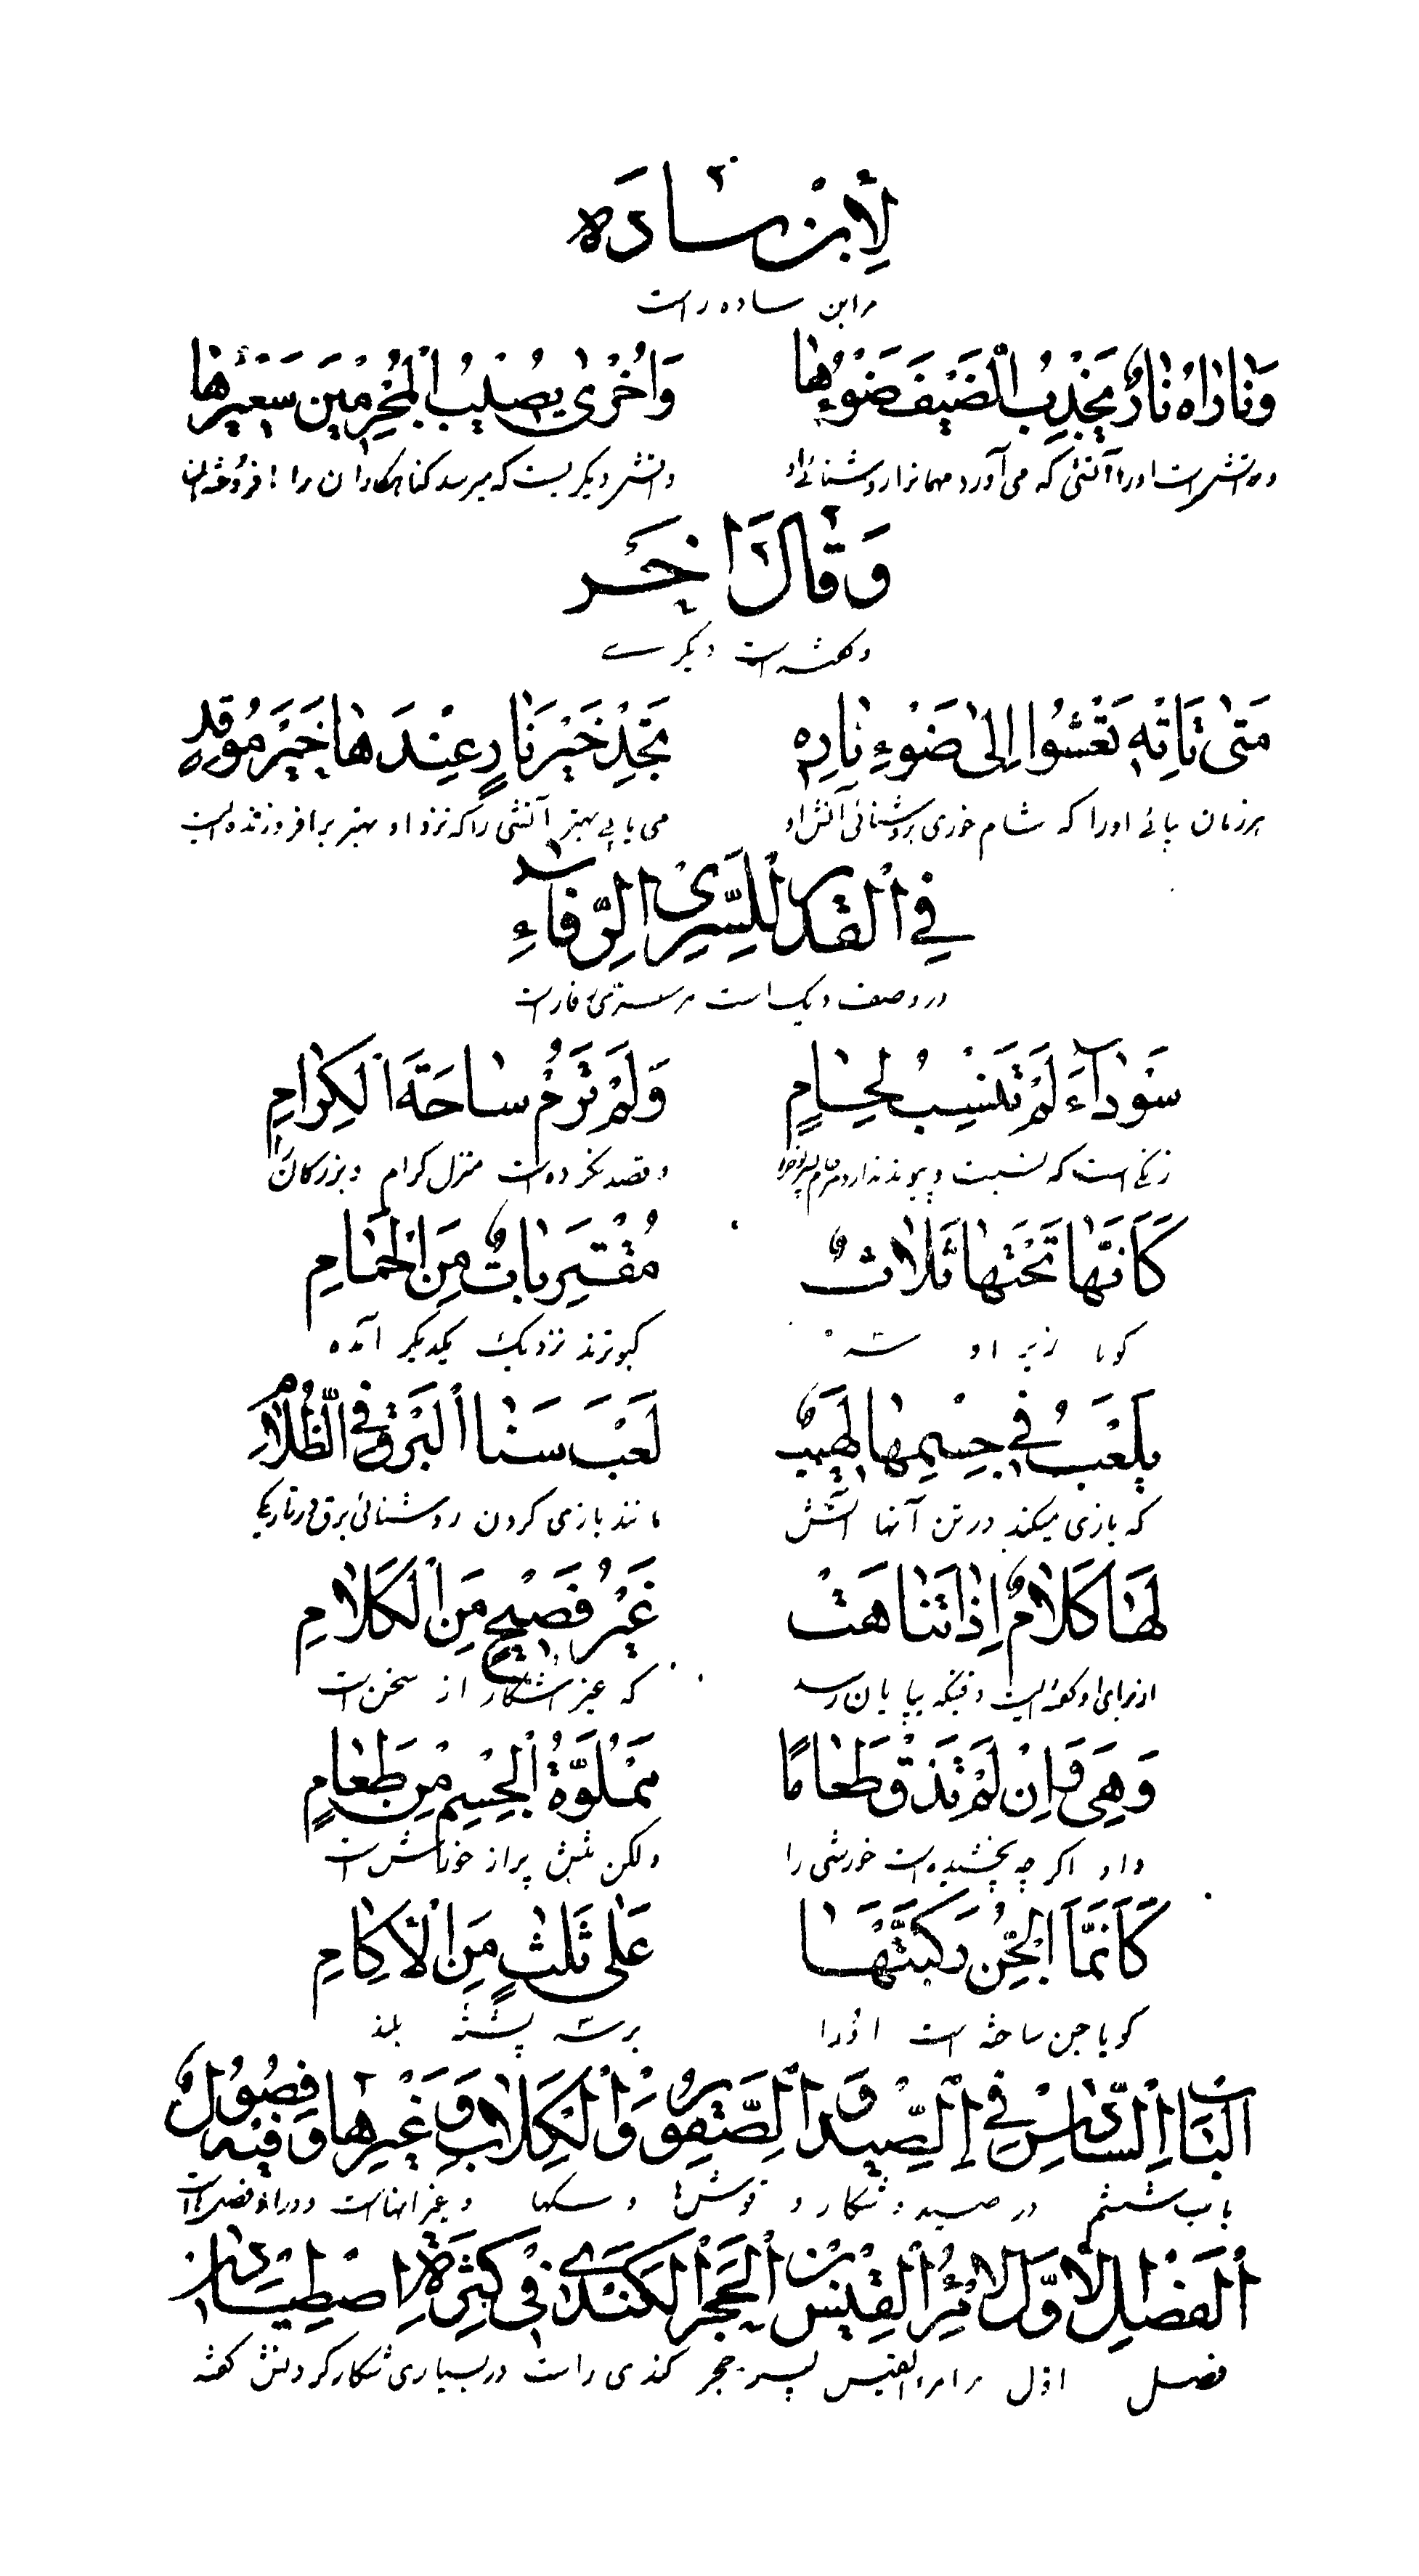 لِأَبْنِ سَادَه
مر ابن ساده راست
وَنَارَاهُ نَارٌ يَجْذِبُ الْضَيْفَ ضَوْءُهَا وَاُخْرٰى يُصْلِيبُ الْمُجْرِمِيْنَ سَعِيْرُهَا
ودو آتش است اورا آتشی که می آورد مهمانرا روشنائی او و آتش دیگریست که میرسد کناهکاران را افروخته
وَقَالَ اٰخَر
وگفته است دیگرے
مَتٰى تَاتِهٖ تَعْشُوْا اِلٰى ضَوْءِ نَارِهٖ تَجِدْ خَيْرَ نَارٍ عِنْدَهَا خَيْرُ مُوقِدِهٖ
هرزمان بیائی اورا که شام خوری بروشنائی آتش او می یابی بهتر آتشی را که نزد او بهتر برافروزنده است
فِي الْقِدْرِ لِلسَّرِيِّ الرَّفَّاءِ
در وصف دیک است مر سری رفا راست
سَوْدَآءَ لَمْ تَنْسِبْ لِحَامٍ وَلَمْ تَرُمْ سَاحَةَ الْكِرَامِ
زنکی است که نسبت و پیوند ندارد وقصد نکرده است منزل کرام و بزرکان
كَاَنَّهَا تَحْتَهَا ثَلَاثٌ مُقْتَرِبَاتٌ مِنَ الْحَمَامِ
کویا زیر او سه کبوترند نزدیک یکدیکر آمده
يَلْعَبُ فِي جِسْمِهَا لَهِيْبٌ لَعْبَ سَنَا الْبَرْقِ فِي الظَّلَامِ
که بازی میکند در تن آنها آتش مانند بازی کردن روشنائی برق در تاریکی
لَهَا كَلَامٌ اِذَا تَنَاهَتْ غَيْرُ فَصِيْحٍ مِنَ الْكَلَامِ
از برای او گفته ایست وقتیکه بپایان رسد که غیر آشکار از سخن است
وَهِيَ وَاِنْ لَمْ تَذُقْ طَعَامًا مَمْلُوَّةُ الْجِسْمِ مِنْ طَعَامٍ
و او اکر چه نچشیده است خورشی را ولکن تنش پر از خورش است
كَاَنَّمَا الْجِنُّ رَكَبَتْهَا عَلٰى ثَلٰثٍ مِنَ الْاَكَامِ
کویا جن ساخته است اورا بر سه پشته بلند
اَلْبَابُ السَّادِسُ فِي الصَّيْدِ وَ الصُّقُورِ وَالْكِلَابِ وَ غَيْرِهَا وَفِيْهِ فُصُوْلٌ
باب ششم در صید و شکار و قوشها و سکها و غیر انهاست ودر او فصلهاست
اَلْفَصْلُ الْاَوَّلُ لِامْرِئِ الْقَيْسِ بْنِ الْحَجَرِ الْكِنْدِيِّ فِي كَثْرَةِ اِصْطِيَادِهِ
فصل اول مر امرء القیس پسر حجر کندی راست در بسیاری شکار کردنش گفته